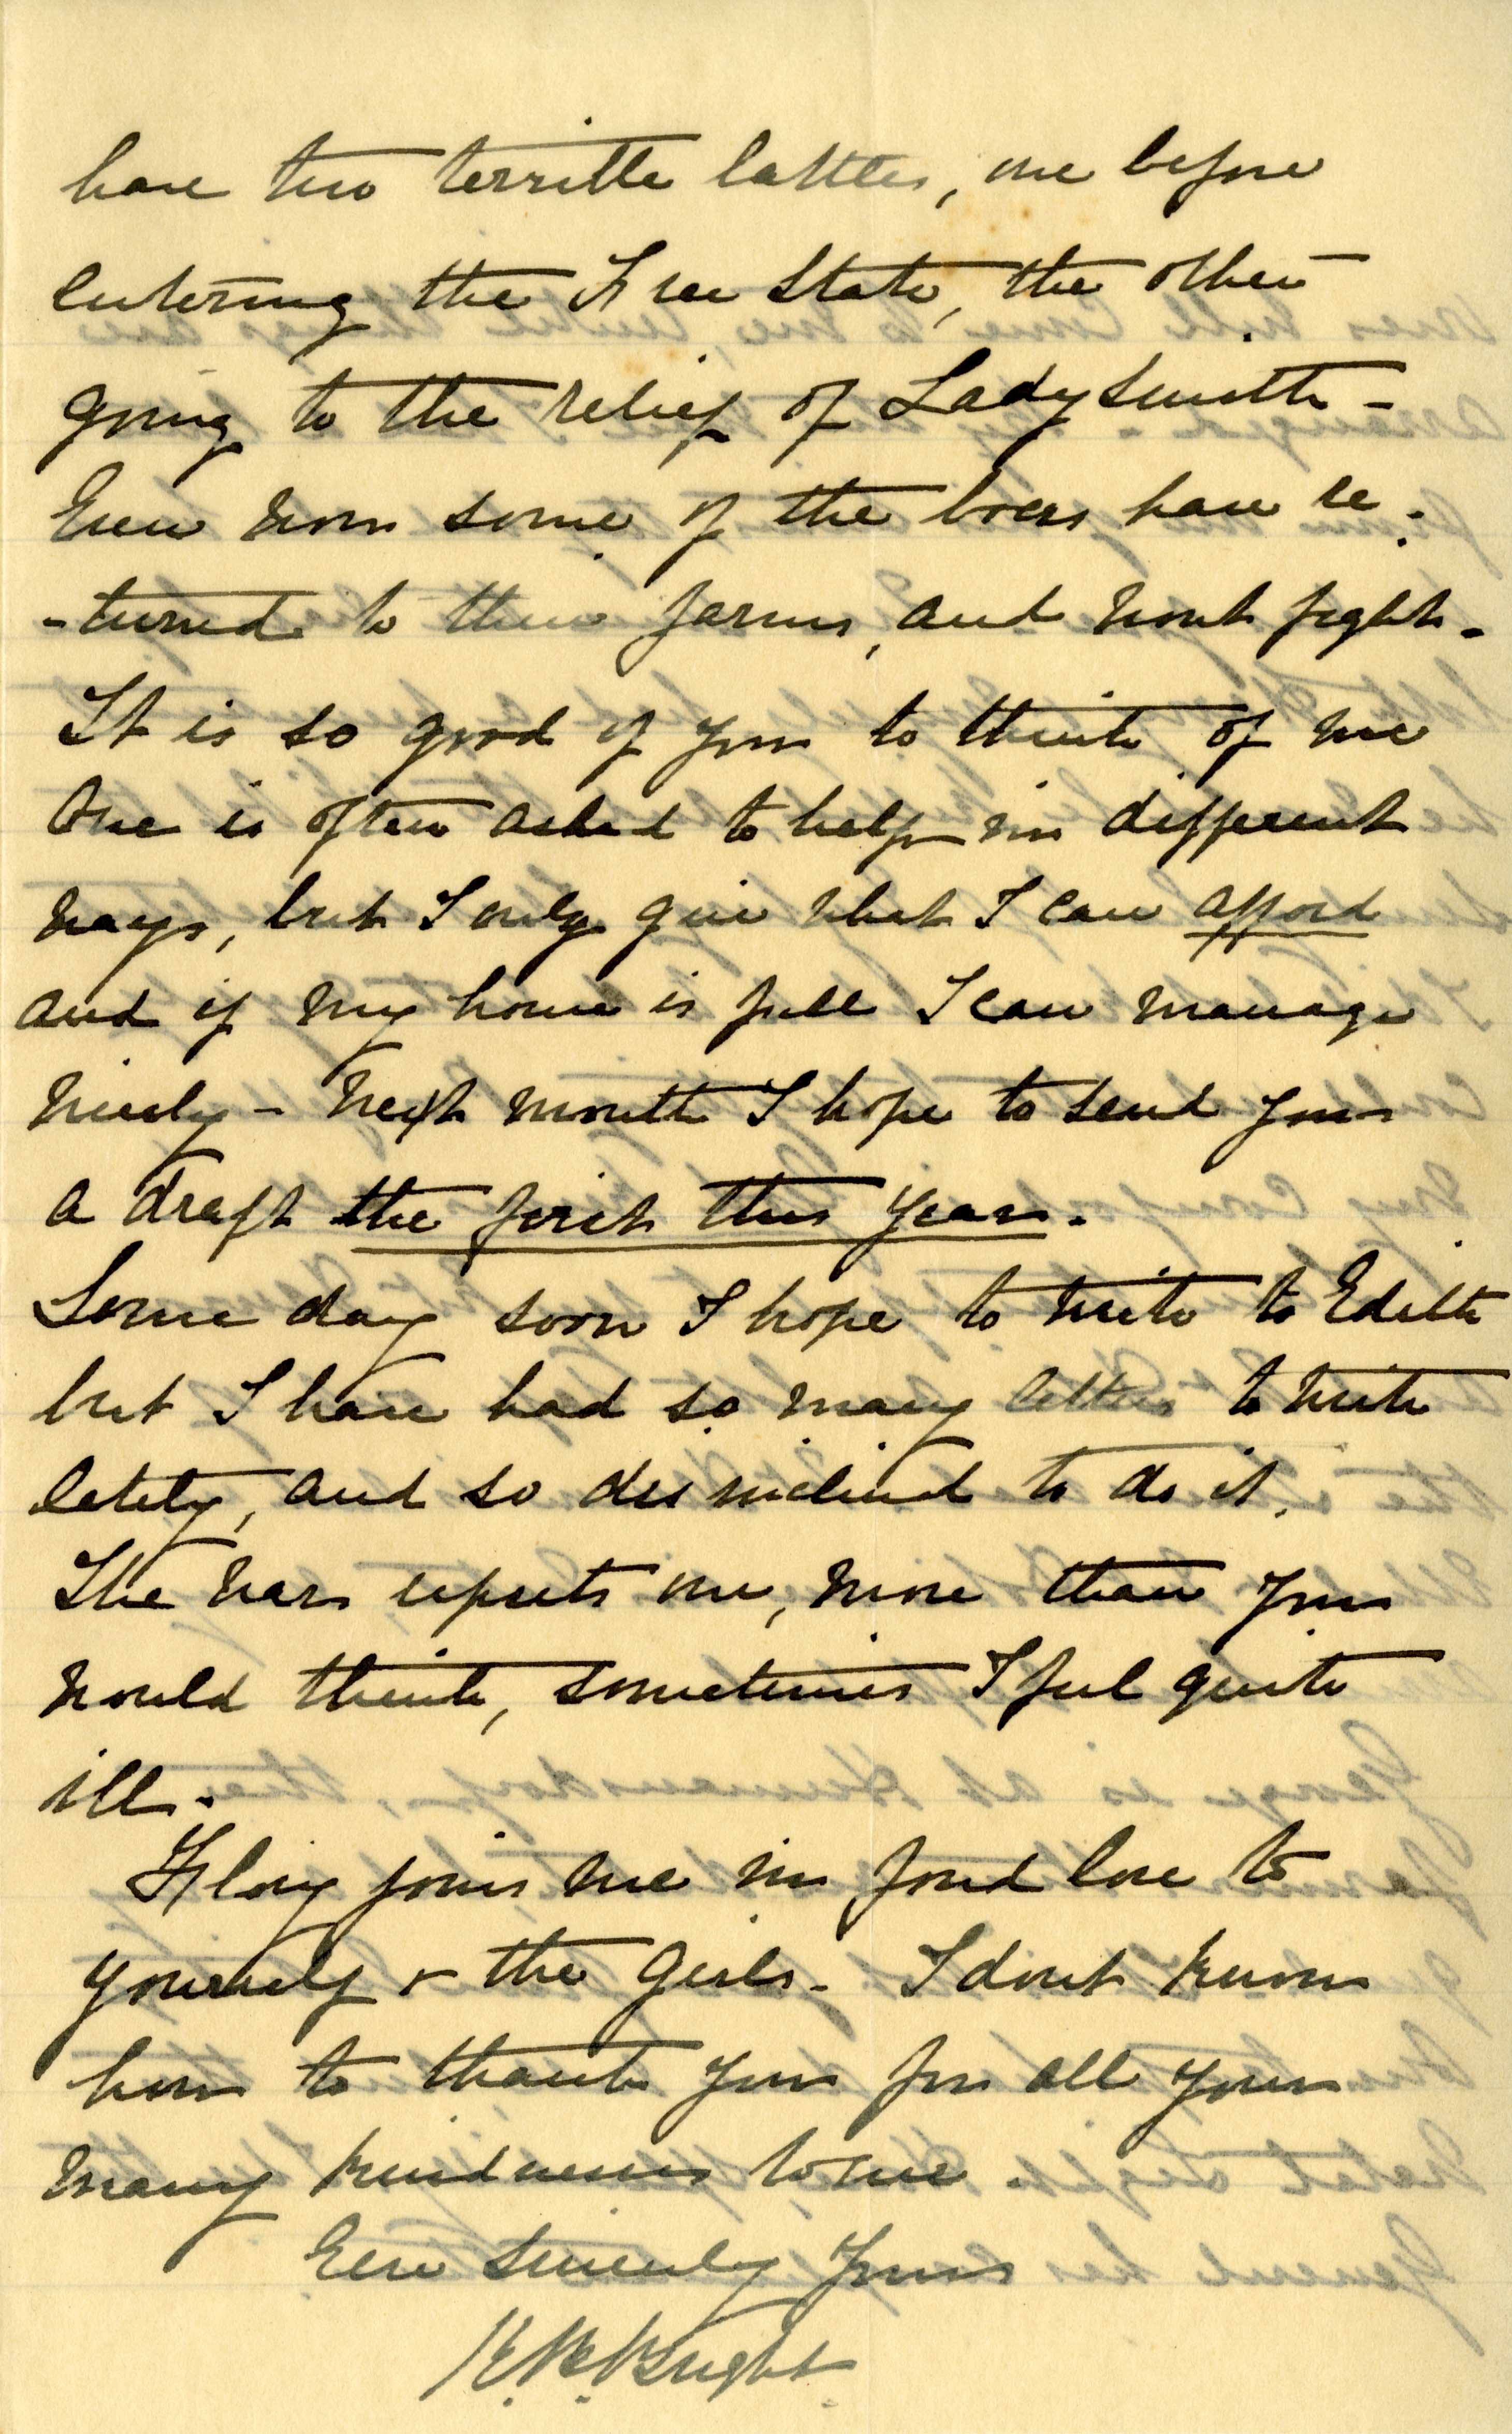 have two terrible battles, one before
entering the Free State, the other
going to the relief of Ladysmith -
Even now some of the boers have re-
-turned to their farms, and wont fight -
It is so good of you to think of me
One is often asked to help in different
ways, but I only give what I can afford
and if my house is full I can manage
nicely - next month I hope to send you
a draft the first this year.
Some day soon I hope to write to Edith
but I have had so many letters to write
lately, and so disinclined to do it.
The war upsets one, more than you
would think, sometimes I feel quite
ill.
Flory joins me in fond love to
yourself & the girls - I dont know
how to thank you for all your
many kindnesses to me
Ever sincerely yours
Knight